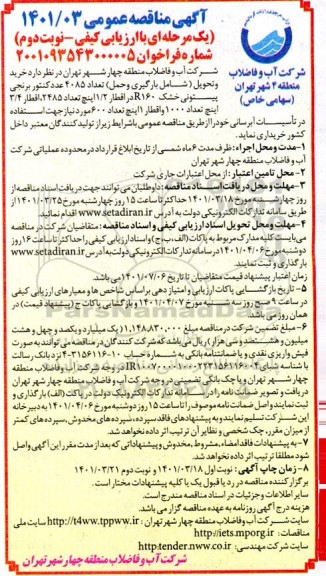 آگهی مناقصه عمومی ۱۴۰۱/۰۳
(یک مرحله ای با ارزیابی کیفی – نوبت دوم)
شماره فراخوان ۲۰۰۱۰۹۳۵۴۳۰۰۰۰۰۵
شرکت آب و فاضلاب
منطقه ۴ شهر تهران
(سهامی خاص)
شرکت آب و فاضلاب منطقه چهار شهر تهران در نظر دارد خرید
و تحویل (شامل بارگیری وحمل) تعداد ۴۰۸۵ عدد کنتور برنجی
پیستونی خشک R۱۶۰ در اقطار ۱/۲ اینچ تعداد ۲۴۸۵، اقطار ۳/۴
اینچ تعداد ۱۰۰۰ و اقطار ۱ اینچ تعداد ۶۰۰ مورد نیاز جهت استفاده
در تأسیسات آبرسانی خود را از طریق مناقصه عمومی با شرایط زیر از تولیدکنندگان معتبر داخل
کشور خریداری نماید.
۱– مدت و محل اجراء: ظرف مدت ۶ ماه شمسی از تاریخ ابلاغ قرارداد در محدوده عملیاتی شرکت
آب و فاضلاب منطقه چهار شهر تهران
۲– محل تامین اعتبار: از محل اعتبارات جاری شرکت
۳– مهلت و محل دریافت اسناد مناقصه: داوطلبان می توانند جهت دریافت اسناد مناقصه از
روز چهارشنبه مورخ ۱۴۰۱/۰۳/۱۸ حداکثر تا ساعت ۱۵ روز چهارشنبه مورخ ۱۴۰۱/۰۳/۲۵ از
طریق سامانه تدارکات الکترونیکی دولت به آدرس www.setadiran.ir اقدام نمائید.
۴– مهلت و محل تحویل اسناد ارزیابی کیفی و اسناد مناقصه: متقاضیان شرکت در مناقصه
می بایست کلیه مدارک مربوط به پاکات (الف، ب، ج) و اسناد ارزیابی کیفی را حداکثر تا ساعت ۱۶ روز
دوشنبه مورخ ۱۴۰۱/۰۴/۰۶ در سامانه تدارکات الکترونیکی دولت به آدرس www.setadiran.ir
بارگذاری و ثبت نمایند.
زمان اعتبار پیشنهاد قیمت متقاضیان تا تاریخ ۱۴۰۱/۰۷/۰۶ می باشد.
۵– تاریخ بازگشایی پاکات ارزیابی و امتیاز دهی براساس شاخص ها و معیارهای ارزیابی کیفی
در ساعت ۹ صبح روز سه شنبه مورخ ۱۴۰۱/۰۴/۰۷ و بازگشایی پاکات ج (پیشنهاد قیمت) در
همان روز می باشد.
۶– مبلغ تضمین شرکت در مناقصه مبلغ ۱,۱۴۸,۸۳۰,۰۰۰ (یک میلیارد و یکصد و چهل و هشت
میلیون و هشتصد و سی هزار) ریال می باشد که شرکت کنندگان در مناقصه می توانند به صورت
فیش واریزی نقدی و یا ضمانتنامه بانکی به شماره حساب
نزد بانک رسالت
در وجه شرکت آب و فاضلاب منطقه
چهار شهر تهران و یا چک بانکی تضمینی در وجه شرکت آب و فاضلاب منطقه چهار شهر تهران
دریافت و تصویر ضمانت نامه را در سامانه تدارکات الکترونیک دولت در پاکت (الف) بارگذاری و
ثبت نمایند و اصل ضمانت نامه موصوف را تا ساعت ۱۵ روز دوشنبه مورخ ۱۴۰۱/۰۴/۰۶ به دبیرخانه
این شرکت تسلیم نمایند و به پیشنهادهای فاقد سپرده، شرده های مخدوش، سپرده های کمتر
از میزان مقرر، چک شخصی و نظایر آن ترتیب اثر داده نخواهد شد.
۷– به پیشنهادات فاقد امضاء، مشروط، مخدوش و پیشنهاداتی که بعد از مدت مقرر این آگهی واصل
شود مطلقا ترتیب اثر داده نخواهد شد.
۸– زمان چاپ آگهی: نوبت اول ۱۴۰۱/۰۳/۱۸ و نوبت دوم ۱۴۰۱/۰۳/۲۱
برگزار کننده مناقصه در رد یا قبول یک یا کلیه پیشنهادات مختار است.
سایر اطلاعات و جزئیات در اسناد مناقصه مندرج است.
هزینه درج آگهی روزنامه به عهده مناقصه گزار می باشد.
سایت شرکت آب و فاضلاب منطقه چهار شهر تهران: http://t4ww.tppww.ir سایت ملی
مناقصات: http://iets.mporg.ir
سایت شرکت مهندسی: http:tender.nww.co.ir
شرکت آب و فاضلاب منطقه چهار شهر تهران